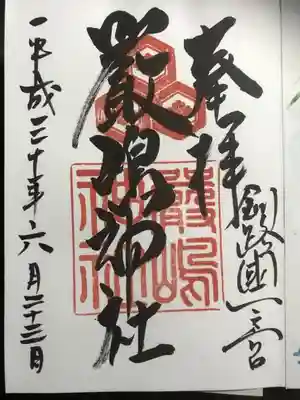 奉拝
釧路國一之宮
嚴島神社
嚴嶋神社
平成三十年六月二十三日